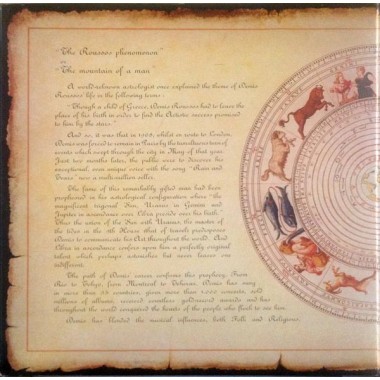 "The Roussos phenomenon"
or
"The mountain of a man"
A world-known astrologist once explained the theme of Demis
Roussos' life in the following terms:
"Though a child of Greece, Demis Roussos had to leave the
place of his birth in order to find the Artistic success promised
to him by the stars."
And so, it was that in 1968, whilst en route to London,
Demis was forced to remain in Paris by the tumultuous turn of
events which swept through the city in May of that year.
Just two months later, the public were to discover his
exceptional, even unique voice with the song "Rain and
Tears" now a multi-million seller.
The fame of this remarkably gifted man had been
prophesied in his astrological configuration where "the
magnificent trigonal Sun, Uranus in Gemini and
Jupiter in ascendance over Libra preside over his birth."
Thus the union of the Sun with Uranus, the master of
the tides in the 8th House that of transit predisposes
Demis to communicate his Art throughout the world. And
Libra in ascendance confers upon him a perfectly original
talent which perhaps astonishes but never leaves one
indifferent.
The path of Demis' career confirms this prophecy. From
Rio to Tokyo, from Montreal to Teheran, Demis has sung
in more than countries, given more than 1,000 concerts, sold
millions of albums, received countless gold record awards and has
throughout the world conquered the hearts of the people who flock to see him.
Demis has blended the musical influences, both Folk and Religious,